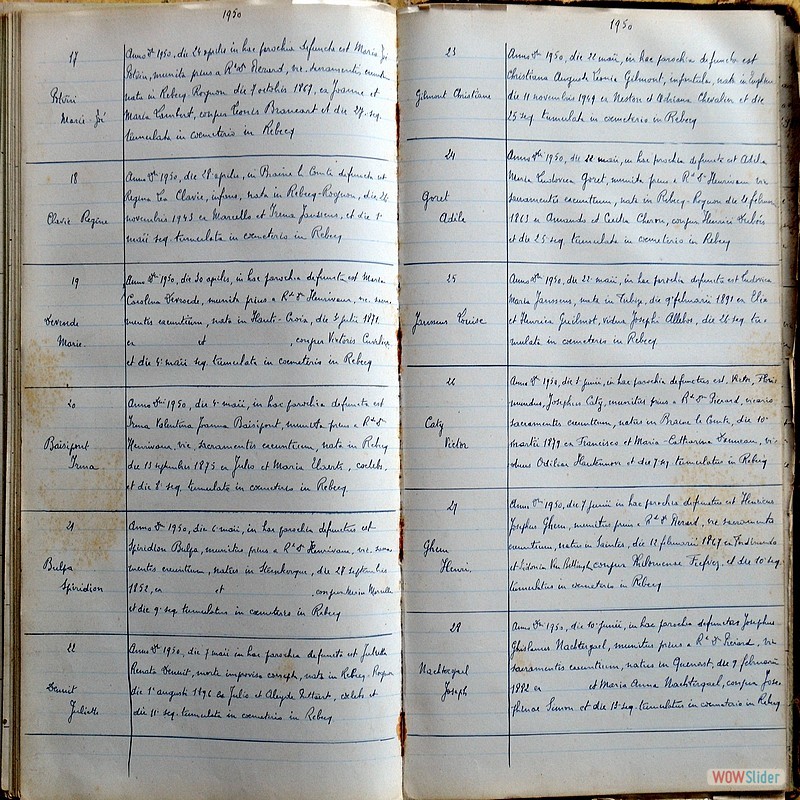 1950
17
Potvin
Marie-Jé
Anno Dni 1950, die 24 aprilis in hac parochia defuncta est Maria Jé
Potvin, munita prius a Rdo Dno Pierard, vic. sacramentis exeuntium
nata in Rebecq-Rognon die 7 octobris 1867, ex Joanne et
Maria Lambert, conjux Louis Brancart et die 27 seq.
tumulata in coemeterio in Rebecq
18
Clavie Regine
Anno Dni 1950, die 28 aprilis, in Braine le Comte defuncta est
Regina Clavie, infirma, nata in Rebecq-Rognon, die 22
novembris 1943 ex Marcello et Irma Janssens, et die 1a
maii seq. tumulata in coemeterio in Rebecq
19
Devende
Marie
Anno Dni 1950, die 30 aprilis, in hac parochia defuncta est Maria
Carolina Devende, munita prius a Rdo Dno Henrivaux, vic. sacra-
mentis exeuntium, nata in Haute-Croix, die 1871
ex et , conjux Victoris
et die 4 maii seq. tumulata in coemeterio in Rebecq
20
Baisipont
Irma
Anno Dni 1950, die 5 maii, in hac parochia defuncta est
Irma Valentina Joanna Baisipont, munita prius a Rdo Dno
Henrivaux, vic. sacramentis exeuntium, nata in Rebecq
die 13 septembris 1875 ex Julio et Maria Claerts, coelebs.
et die 8 seq. tumulata in coemeterio in Rebecq
21
Bulpa
Spiridion
Anno Dni 1950, die 6 maii, in hac parochia defunctus est
Spiridion Bulpa, munitus prius a Rdo Dno Henrivaux, vic. sacra-
mentis exeuntium, natus in Steenkerque, die 28 septembris
1852, ex et , conjux
et die 9 seq. tumulatus in coemeterio in Rebecq
22
Denuit
Juliette
Anno Dni 1950, die 7 maii in hac parochia defuncta est Julietta
Renata Denuit, morte improvisa correpta, nata in Rebecq-Rognon
die 1a augusti 1896 ex Julio et Aleyde Ottart, coelebs et
die 11 seq. tumulata in coemeterio in Rebecq
1950
23
Gilmont Christiane
Anno Dni 1950, die 22 maii, in hac parochia defuncta est
Christiana Augusta Leonia Gilmont, infantula, nata in Enghien
die 11 novembris 1949 ex Nestore et Adriana Chevalier et die
25 seq. tumulata in coemeterio in Rebecq
24
Goret
Adile
Anno Dni 1950, die 22 maii, in hac parochia defuncta est Adila
Maria Ludovica Goret, munita prius a Rdo Dno Henrivaux vic.
sacramentis exeuntium, nata in Rebecq-Rognon die 21 februarii
1863 ex Amando et Cecilia Cheron, conjux Henrici Dubois
et die 25 seq. tumulata in coemeterio in Rebecq
25
Janssens Louise
Anno Dni 1950, die 22 maii, in hac parochia defuncta est Ludovica
Maria Janssens, nata in Tubize, die 9 februarii 1891 ex Elia
et Henrica Guilmot, vidua Josephi Allebos, die 26 seq. tu-
mulata in coemeterio in Rebecq
26
Caty
Victor
Anno Dni 1950, die 5 junii, in hac parochia defunctus est Victor, Flori-
mundus, Josephus Caty, munitus prius a Rdo Dno Pierard, vicario
sacramentis exeuntium, natus in Braine le Comte, die 10
martii 1879 ex Francisco et Maria-Catharina , vi-
duus Odiliae et die 7 seq. tumulatus in Rebecq
27
Ghem
Henri
Anno Dni 1950, die 7 junii in hac parochia defunctus est Henricus
Josephus Ghem, munitus prius a Rdo Dno Pierard, vic. sacramentis
exeuntium, natus in Saintes, die 12 februarii 1867 ex Ferdinando
et Sidonia Van , conjux Philomenae et die 10 seq.
tumulatus in coemeterio in Rebecq
28
Nachtergael
Joseph
Anno Dni 1950, die 10 junii, in hac parochia defunctus Josephus
Ghislanus Nachtergael, munitus prius a Rdo Dno Pierard, vic
sacramentis exeuntium, natus in Quenast, die 9 februarii
1892 ex et Maria Anna Nachtergael, conjux Jose-
phinae Simon et die 13 seq. tumulatus in coemeterio in Rebecq
WOWSlider